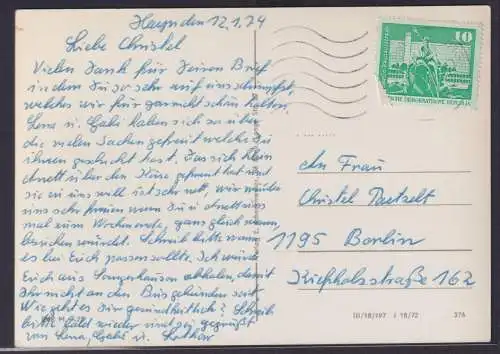 den 12.1.74
Liebe Christel
Vielen Dank für Deinen Brief
in dem Du so sehr auf uns schimpfst,
welches wir für garnicht schön halten.
Lena u. Gabi haben sich so über
die vielen Sachen gefreut welche Du
ihnen geschickt hast. Das sich klein
Anett über den Käse gefreut hat und
sie zu uns will ist sehr nett, wir würden
uns sehr freuen wenn Du u. Anett uns
mal zum Wochenende, ganz gleich wann,
besuchen würdet. Schreib bitte wann
es bei Euch passen sollte. Ich würde
Euch aus Sangerhausen abholen, damit
Ihr nicht an den Bus gebunden seid.
Wie geht es Dir gesundheitlich? Schreib
bitte bald wieder und sei gegrüßt
von Lena, Gabi u. Lothar
10
DEUTSCHE DEMOKRATISCHE REPUBLIK
An Frau
Christel
1195 Berlin
Kiefholzstraße 162
III/18/197 J 18/72 376